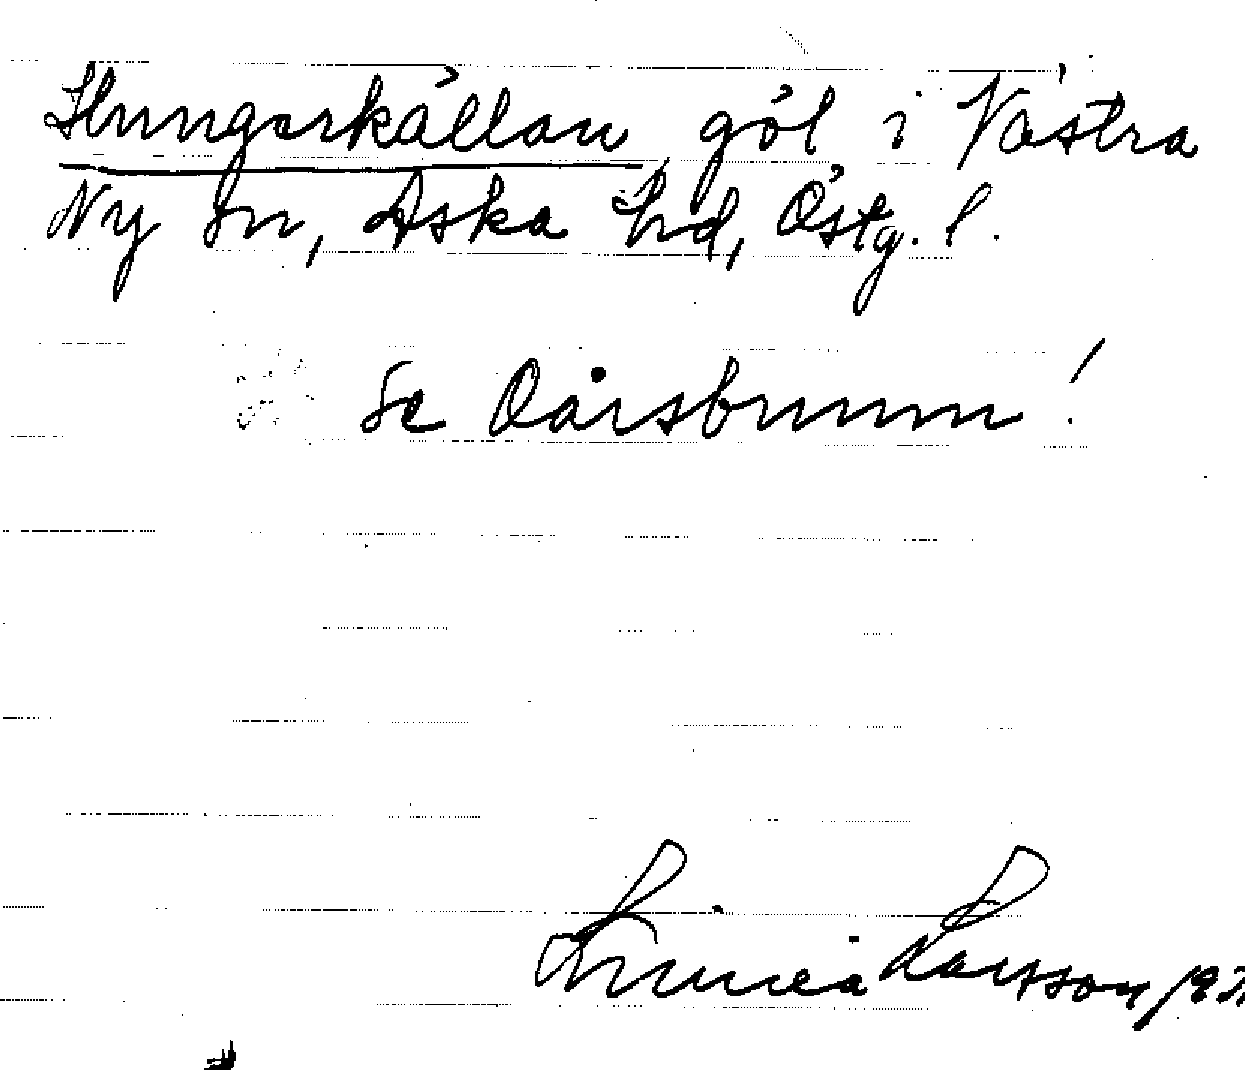 Hungerkällan göl i Västra
Ny sn, Aska hd, Östg. l.
Se Oårsbrunn!
Linnea Larsson